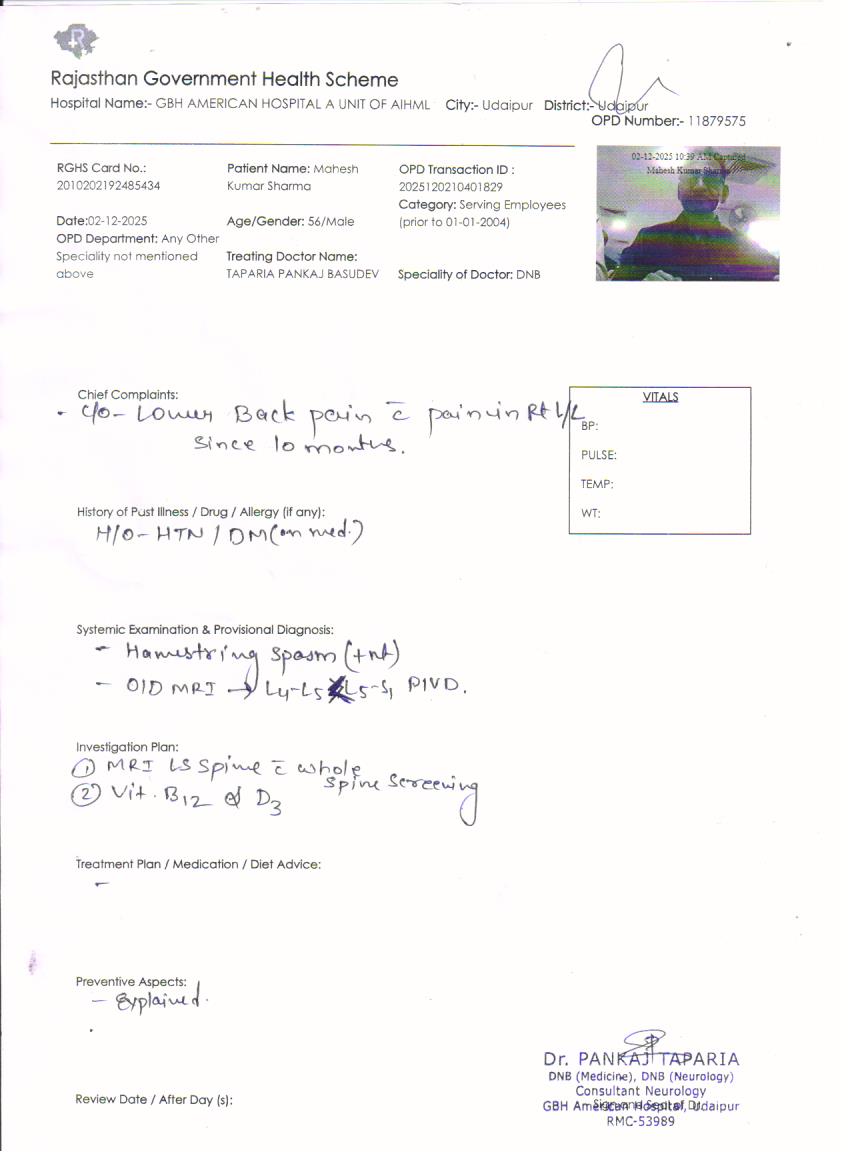 Rajasthan Government Health Scheme
Hospital Name:- GBH AMERICAN HOSPITAL A UNIT OF AIHML City:- Udaipur District:- Udaipur
OPD Number:- 11879575
RGHS Card No.:
2010202192485434
Patient Name: Mahesh
Kumar Sharma
OPD Transaction ID :
2025120210401829
Category: Serving Employees
(prior to 01-01-2004)
02-12-2025 10:39 AM Captured
Mahesh Kumar Sharma
Date:02-12-2025
OPD Department: Any Other
Speciality not mentioned
above
Age/Gender: 56/Male
Treating Doctor Name:
TAPARIA PANKAJ BASUDEV
Speciality of Doctor: DNB
Chief Complaints:
- C/O - Lower Back pain c̄ pain in Rt L/L
since 10 months.
VITALS
BP:
PULSE:
TEMP:
WT:
History of Past Illness / Drug / Allergy (if any):
H/O - HTN / DM (on med.)
Systemic Examination & Provisional Diagnosis:
- Hamestring spasm (+nt)
- OID MRI → L4-L5 L5-S1 PIVD.
Investigation Plan:
① MRI LS Spine c̄ whole
spine screening
② Vit. B12 & D3
Treatment Plan / Medication / Diet Advice:
-
Preventive Aspects:
- Explained.
Dr. PANKAJ TAPARIA
DNB (Medicine), DNB (Neurology)
Consultant Neurology
GBH American Hospital, Udaipur
RMC-53989
Review Date / After Day (s):